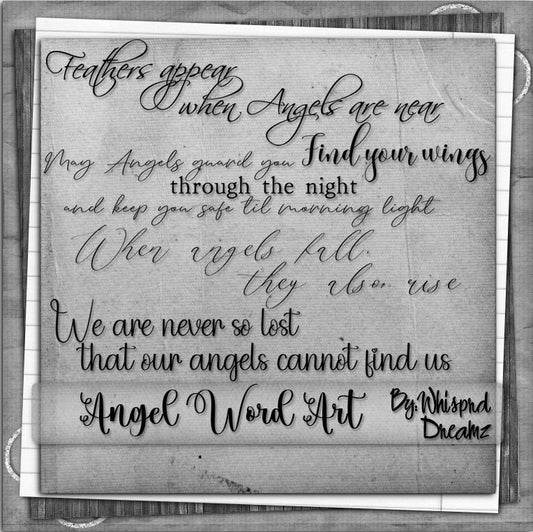 Feathers appear
when Angels are near
May Angels guard you
Find your wings
through the night
and keep you safe til morning light
When angels fall,
they also, rise
We are never so lost
that our angels cannot find us
Angel Word Art
By: Whisprd
Dreamz